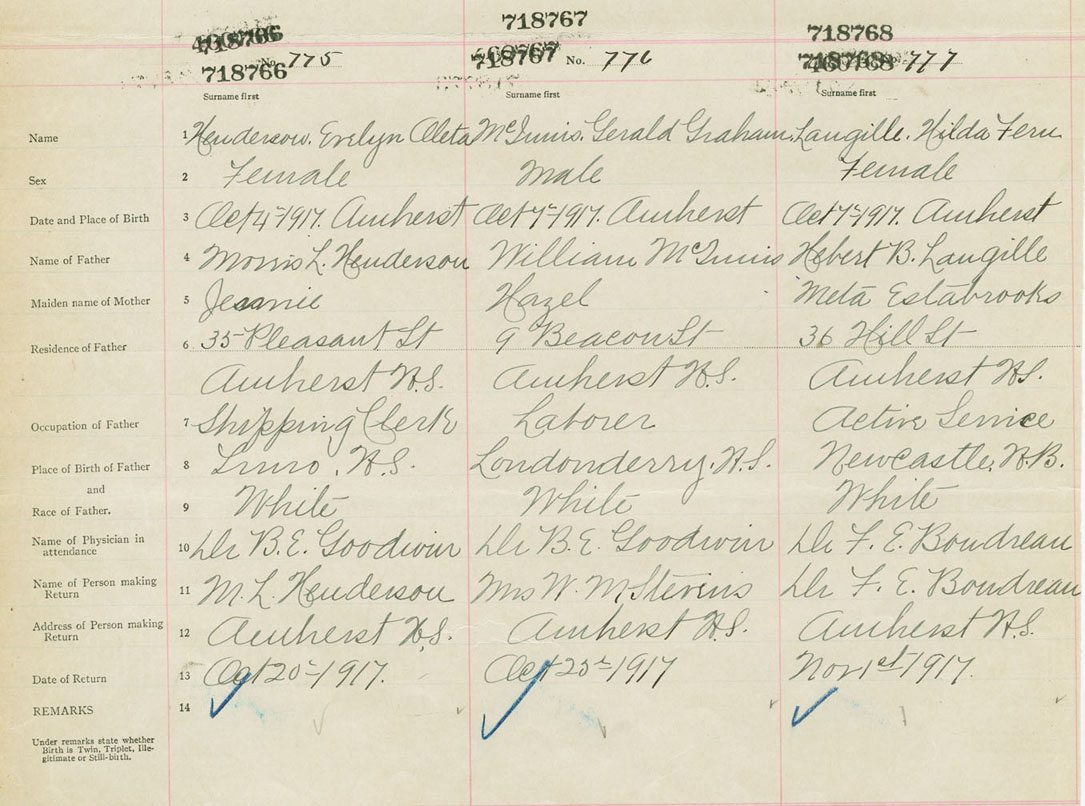 718767
718768
718766 No. 775
718767 No. 776
718768 No. 777
718766
Surname first Surname first Surname first
Name 1 Henderson. Evelyn Oleta McInnis. Gerald Graham. Langille. Hilda Fern
Sex 2 Female Male Female
Date and Place of Birth 3 Oct 4th 1917. Amherst Oct 7th 1917. Amherst Oct 7th 1917. Amherst
Name of Father 4 Morris L. Henderson William McInnis Hebert B. Langille
Maiden name of Mother 5 Jeannie Hazel Meta Estabrooks
Residence of Father 6 35 Pleasant St 9 Beacon St 36 Hill St
Amherst N.S. Amherst N.S. Amherst N.S.
Occupation of Father 7 Shipping Clerk Laborer Active Service
Place of Birth of Father 8 Truro, N.S. Londonderry, N.S. Newcastle, N.B.
and
Race of Father. 9 White White White
Name of Physician in
attendance 10 Dr B.E. Goodwin Dr B.E. Goodwin Dr F. E. Boudreau
Name of Person making
Return 11 M. L. Henderson Mrs W. M Stevens Dr F. E. Boudreau
Address of Person making
Return 12 Amherst N.S. Amherst N.S. Amherst N.S.
Date of Return 13 Oct 20th 1917. Oct 25th 1917 Nov 1st 1917.
REMARKS 14
Under remarks state whether
Birth is Twin, Triplet, Ille-
gitimate or Still-birth.